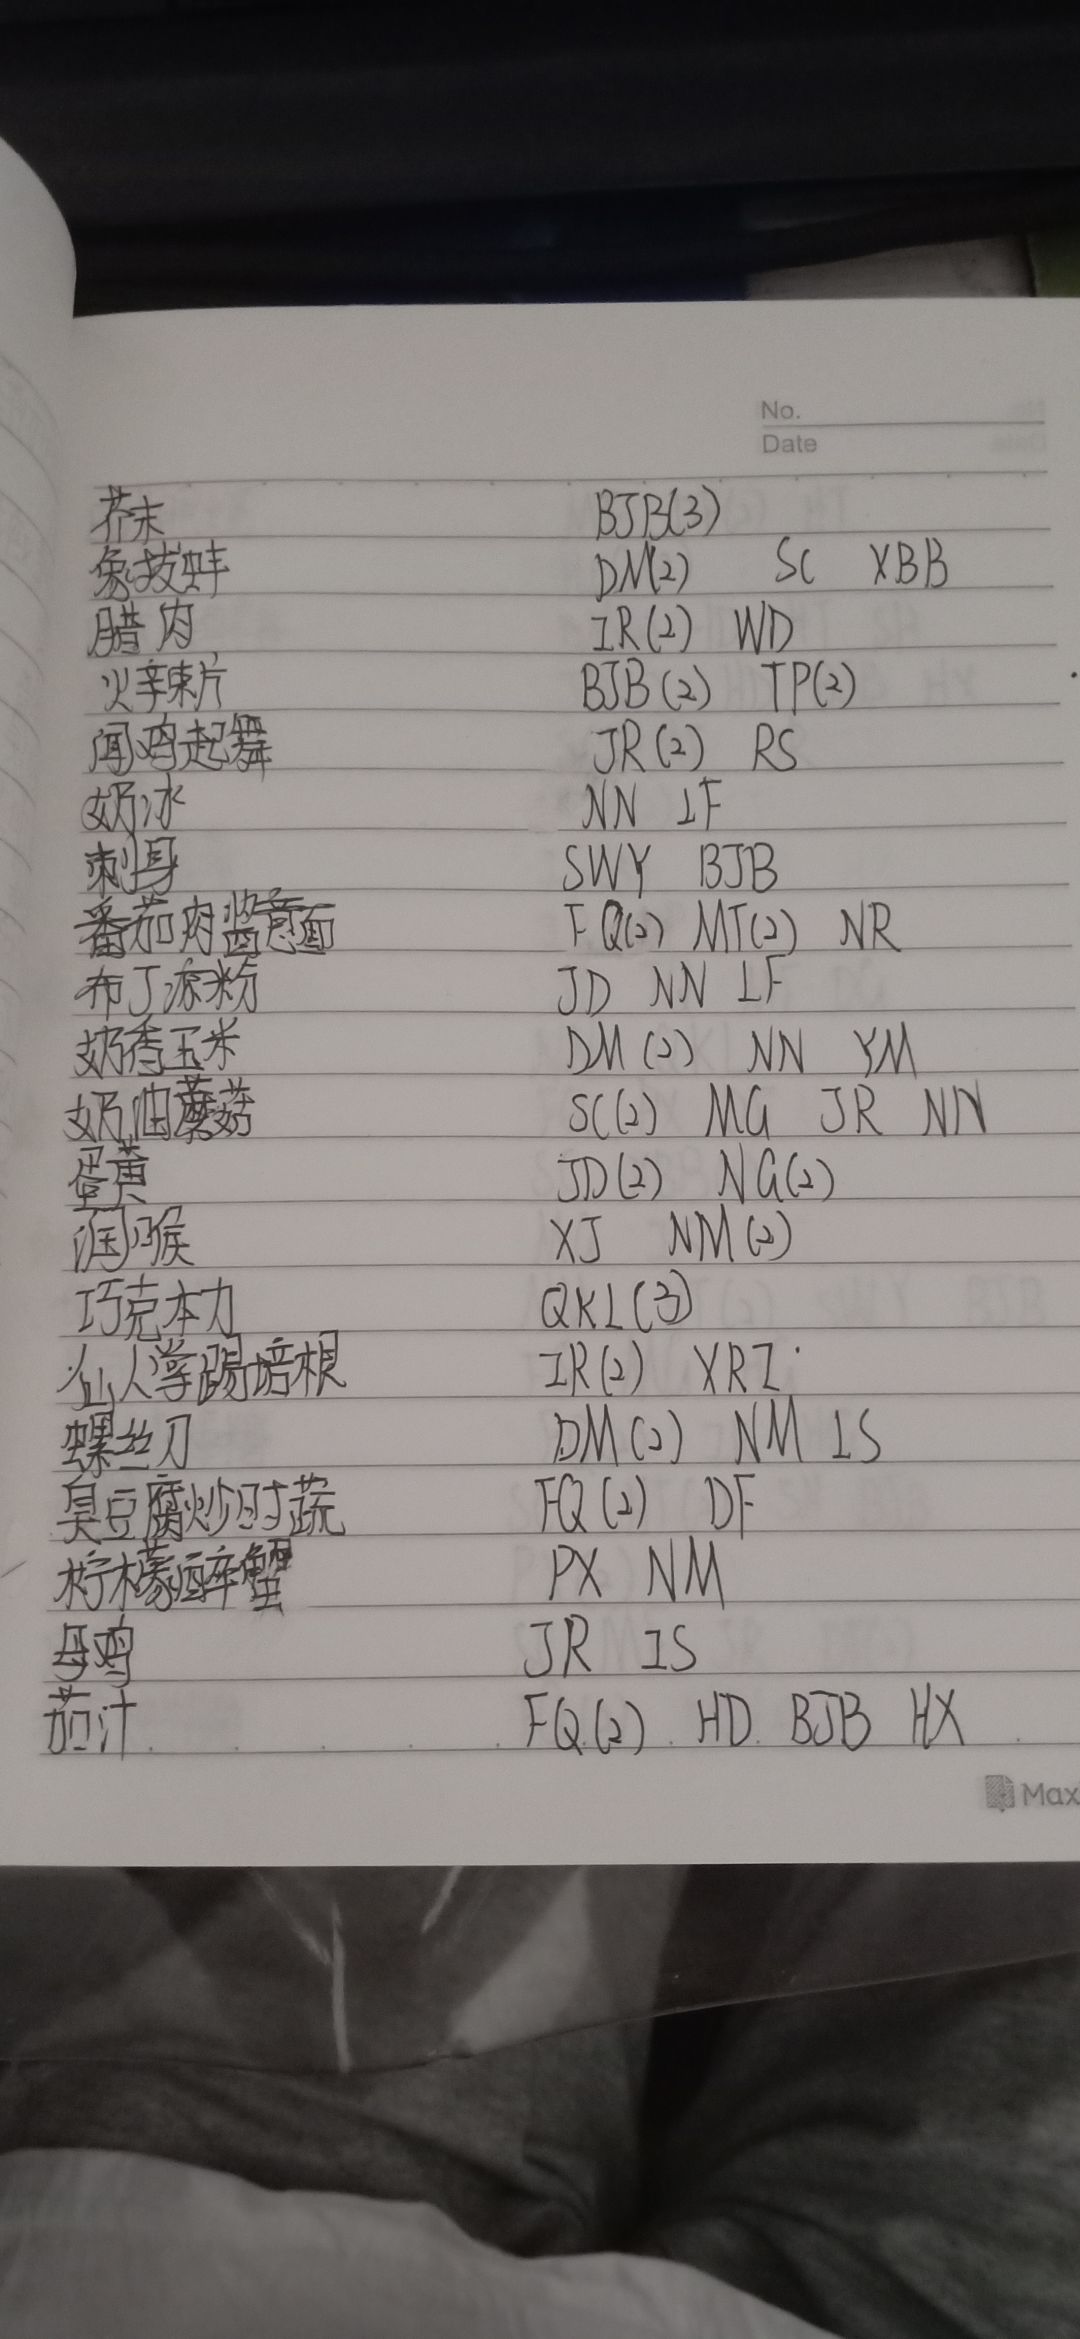 No.
Date
芥末 BJB(3)
象拔蚌 DM(2) SC XBB
腊肉 IR(2) WD
火辛辣片 BJB(2) TP(2)
闻鸡起舞 JR(2) RS
奶冰 NN IF
刺身 SWY BJB
番茄肉酱意面 FQ(2) MT(2) NR
布丁凉粉 JD NN IF
奶香玉米 DM(2) NN YM
奶油蘑菇 SC(2) MG JR NN
蛋黄 JD(2) NG(2)
润喉 XJ NM(2)
巧克本力 QKL(3)
仙人掌踢培根 IR(2) XRZ
螺丝刀 DM(2) NM IS
臭豆腐炒时蔬 FQ(2) DF
柠檬醉蟹 PX NM
母鸡 JR IS
茄汁 FQ(2) HD BJB HX
Max